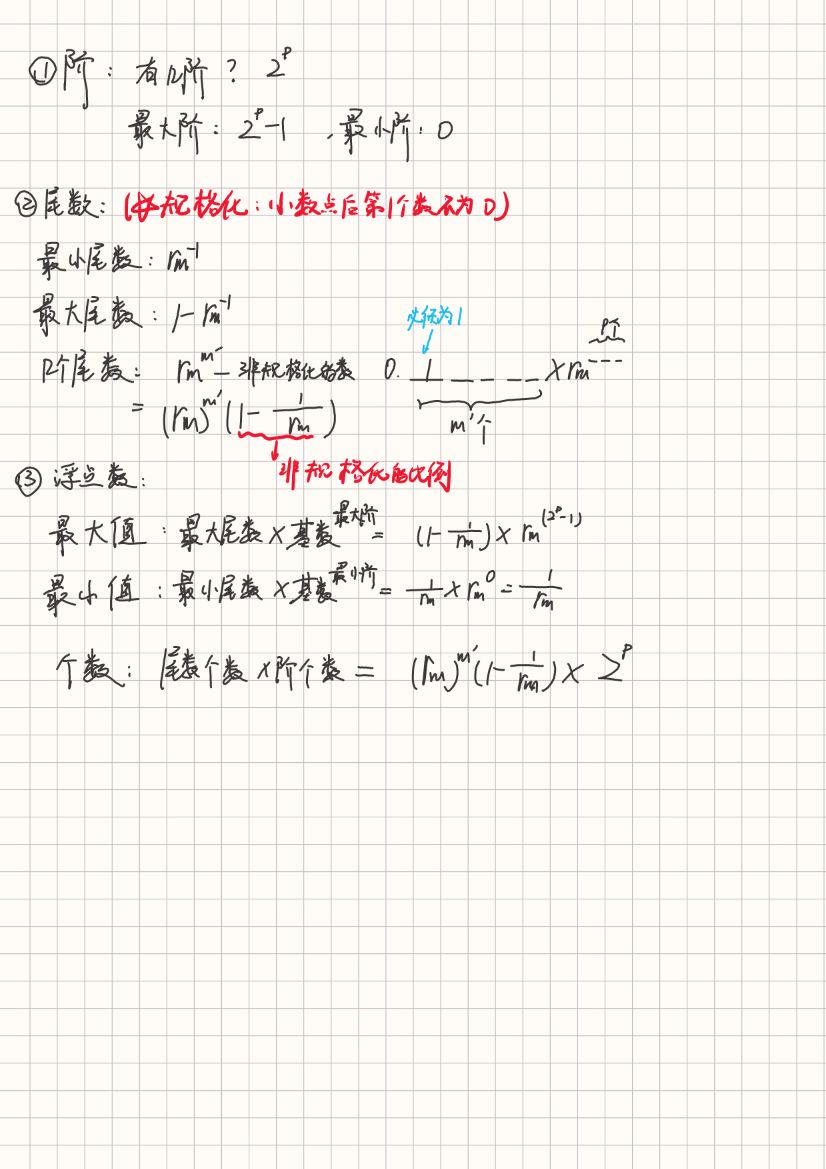 ① 阶： 有几阶？ 2^p
最大阶：2^p-1 ，最小阶：0
② 尾数：(规格化：小数点后第1个数不为0)
最小尾数：rm^-1
最大尾数：1-rm^-1
必须为1
p个
几个尾数： rm^m' - 非规格化的数 0. 1 _ _ _ _ × rm^---
= (rm)^m' (1 - 1/rm) m'个
非规格化的比例
③ 浮点数：
最大值：最大尾数×基数^最大阶 = (1-1/rm)×rm^(2^p-1)
最小值：最小尾数×基数^最小阶 = 1/rm×rm^0 = 1/rm
个数：尾数个数×阶个数 = (rm)^m' (1-1/rm)× 2^p